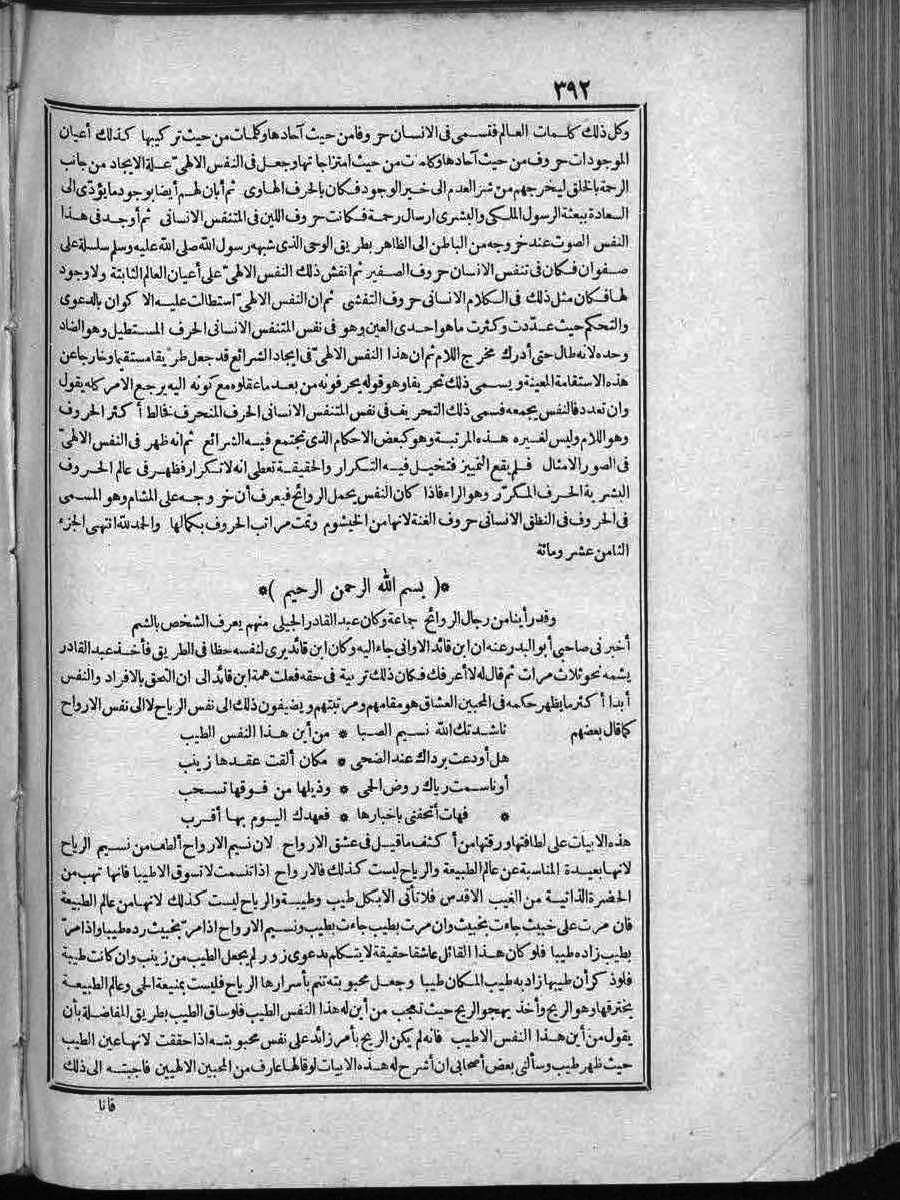 ٣٩٢
وكل ذلك كلمات العالم فتسمى فى الانسان حروفا من حيث آحادها وكلمات من حيث تركيبها كذلك أعيان
الموجودات حروف من حيث آحادها وكلمات من حيث امتزاجاتها وجعل فى النفس الالهى علة الايجاد من جانب
الرحمة بالخلق ليخرجهم من شر العدم الى خير الوجود فكان بالحرف الهاوى ثم أبان لهم أيضا بوجود ما يؤدى الى
السعادة ببعثة الرسول الملكى والبشرى ارسال رحمة فكانت حروف اللين فى المتنفس الانسانى ثم أوجد فى هذا
النفس الصوت عند خروجه من الباطن الى الظاهر بطريق الوحى الذى شبهه رسول الله صلى الله عليه وسلم سلسلة على
صفوان فكان فى تنفس الانسان حروف الصفير ثم انفش ذلك النفس الالهى على أعيان العالم الثابتة ولا وجود
لها فكان مثل ذلك فى الكلام الانسانى حروف التفشى ثم ان النفس الالهى استطالت عليه الاكوان بالدعوى
والتحكم حيث عدّدت وكثرت ما هو احدى العين وهو فى نفس المتنفس الانسانى الحرف المستطيل وهو الضاد
وحده لانه طال حتى أدرك مخرج اللام ثم ان هذا النفس الالهى فى ايجاد الشرائع قد جعل طريقا مستقيما وخارجا عن
هذه الاستقامة المعينة ويسمى ذلك تحريفا وهو قوله يحرفونه من بعد ما عقلوه مع كونه اليه يرجع الامر كله يقول
وان تعدد فالنفس يجمعه فسمى ذلك التحريف فى نفس المتنفس الانسانى الحرف المنحرف نخالط أكثر الحروف
وهو اللام وليس لغيره هذه المرتبة وهو كبعض الاحكام الذى تجتمع فيه الشرائع ثم انه ظهر فى النفس الالهى
فى الصور الامثال فلم يقع التمييز فتخيل فيه التكرار والحقيقة تعطى انه لا تكرار فظهر فى عالم الحروف
البشرية الحرف المكرّر وهو الراء فاذا كان النفس يحمل الروائح فيعرف أن خروجه على المشام وهو المسمى
فى الحروف فى النطق الانسانى حروف الغنة لانها من الخيشوم وتمت مراتب الحروف بكمالها والحمد لله انتهى الجزء
الثامن عشر ومائة
*( بسم الله الرحمن الرحيم )*
وقد رأينا من رجال الروائح جماعة وكان عبد القادر الجيلى منهم يعرف الشخص بالشم
أخبرنى صاحبى أبو البدر عنه ان ابن قائد الاوانى جاء اليه وكان ابن قائد يرى لنفسه حظا فى الطريق فأخذ عبد القادر
يشمه نحو ثلاث مرات ثم قال له لا أعرفك فكان ذلك تربية فى حقه فعلت همة ابن قائد الى ان التحق بالافراد والنفس
أبدا أكثر ما يظهر حكمه فى المحبين العشاق هو مقامهم ومرتبتهم ويضيفون ذلك الى نفس الرياح لا الى نفس الارواح
كما قال بعضهم ناشدتك الله نسيم الصبا * من أين هذا النفس الطيب
هل أودعت برداك عند الضحى * مكان ألقت عقدها زينب
أو ناسمت رياك روض الحمى * وذيلها من فوقها تسحب
* فهات أتحفنى باخبارها * فعهدك اليوم بها أقرب
هذه الابيات على لطافتها ورقتها من أكثف ما قيل فى عشق الارواح لان نسيم الارواح ألطف من نسيم الرياح
لانها بعيدة المناسبة عن عالم الطبيعة والرياح ليست كذلك فالارواح اذا تنسمت لا تسوق الا طيبا فانها تهب من
الحضرة الذاتية من الغيب الاقدس فلا تأتى الا بكل طيب وطيبة والرياح ليست كذلك لانها من عالم الطبيعة
فان مرت على خبيث جاءت بخبيث وان مرت بطيب جاءت بطيب ونسيم الارواح اذا مرّ بخبيث رده طيبا واذا مرّ
بطيب زاده طيبا فلو كان هذا القائل عاشقا حقيقة لا يتكلم بدعوى زور لم يجعل الطيب من زينب وان كانت طيبة
فلو ذكر أن طيبها زاد به طيب المكان طيبا وجعل محبوبته تنم بأسرارها الرياح فليست بمنيعة الحمى وعالم الطبيعة
يخترقها وهو الريح وأخذ يهجو الريح حيث تعجب من أين له هذا النفس الطيب فلو ساق الطيب بطريق المفاضلة بأن
يقول من أين هذا النفس الاطيب فانه لم يكن الريح بأمر زائد على نفس محبوبته اذا حققت لانها عين الطيب
حيث ظهر طيب وسألنى بعض أصحابى ان أشرح له هذه الابيات لو قالها عارف من المحبين الالهيين فاجبته الى ذلك
فانا